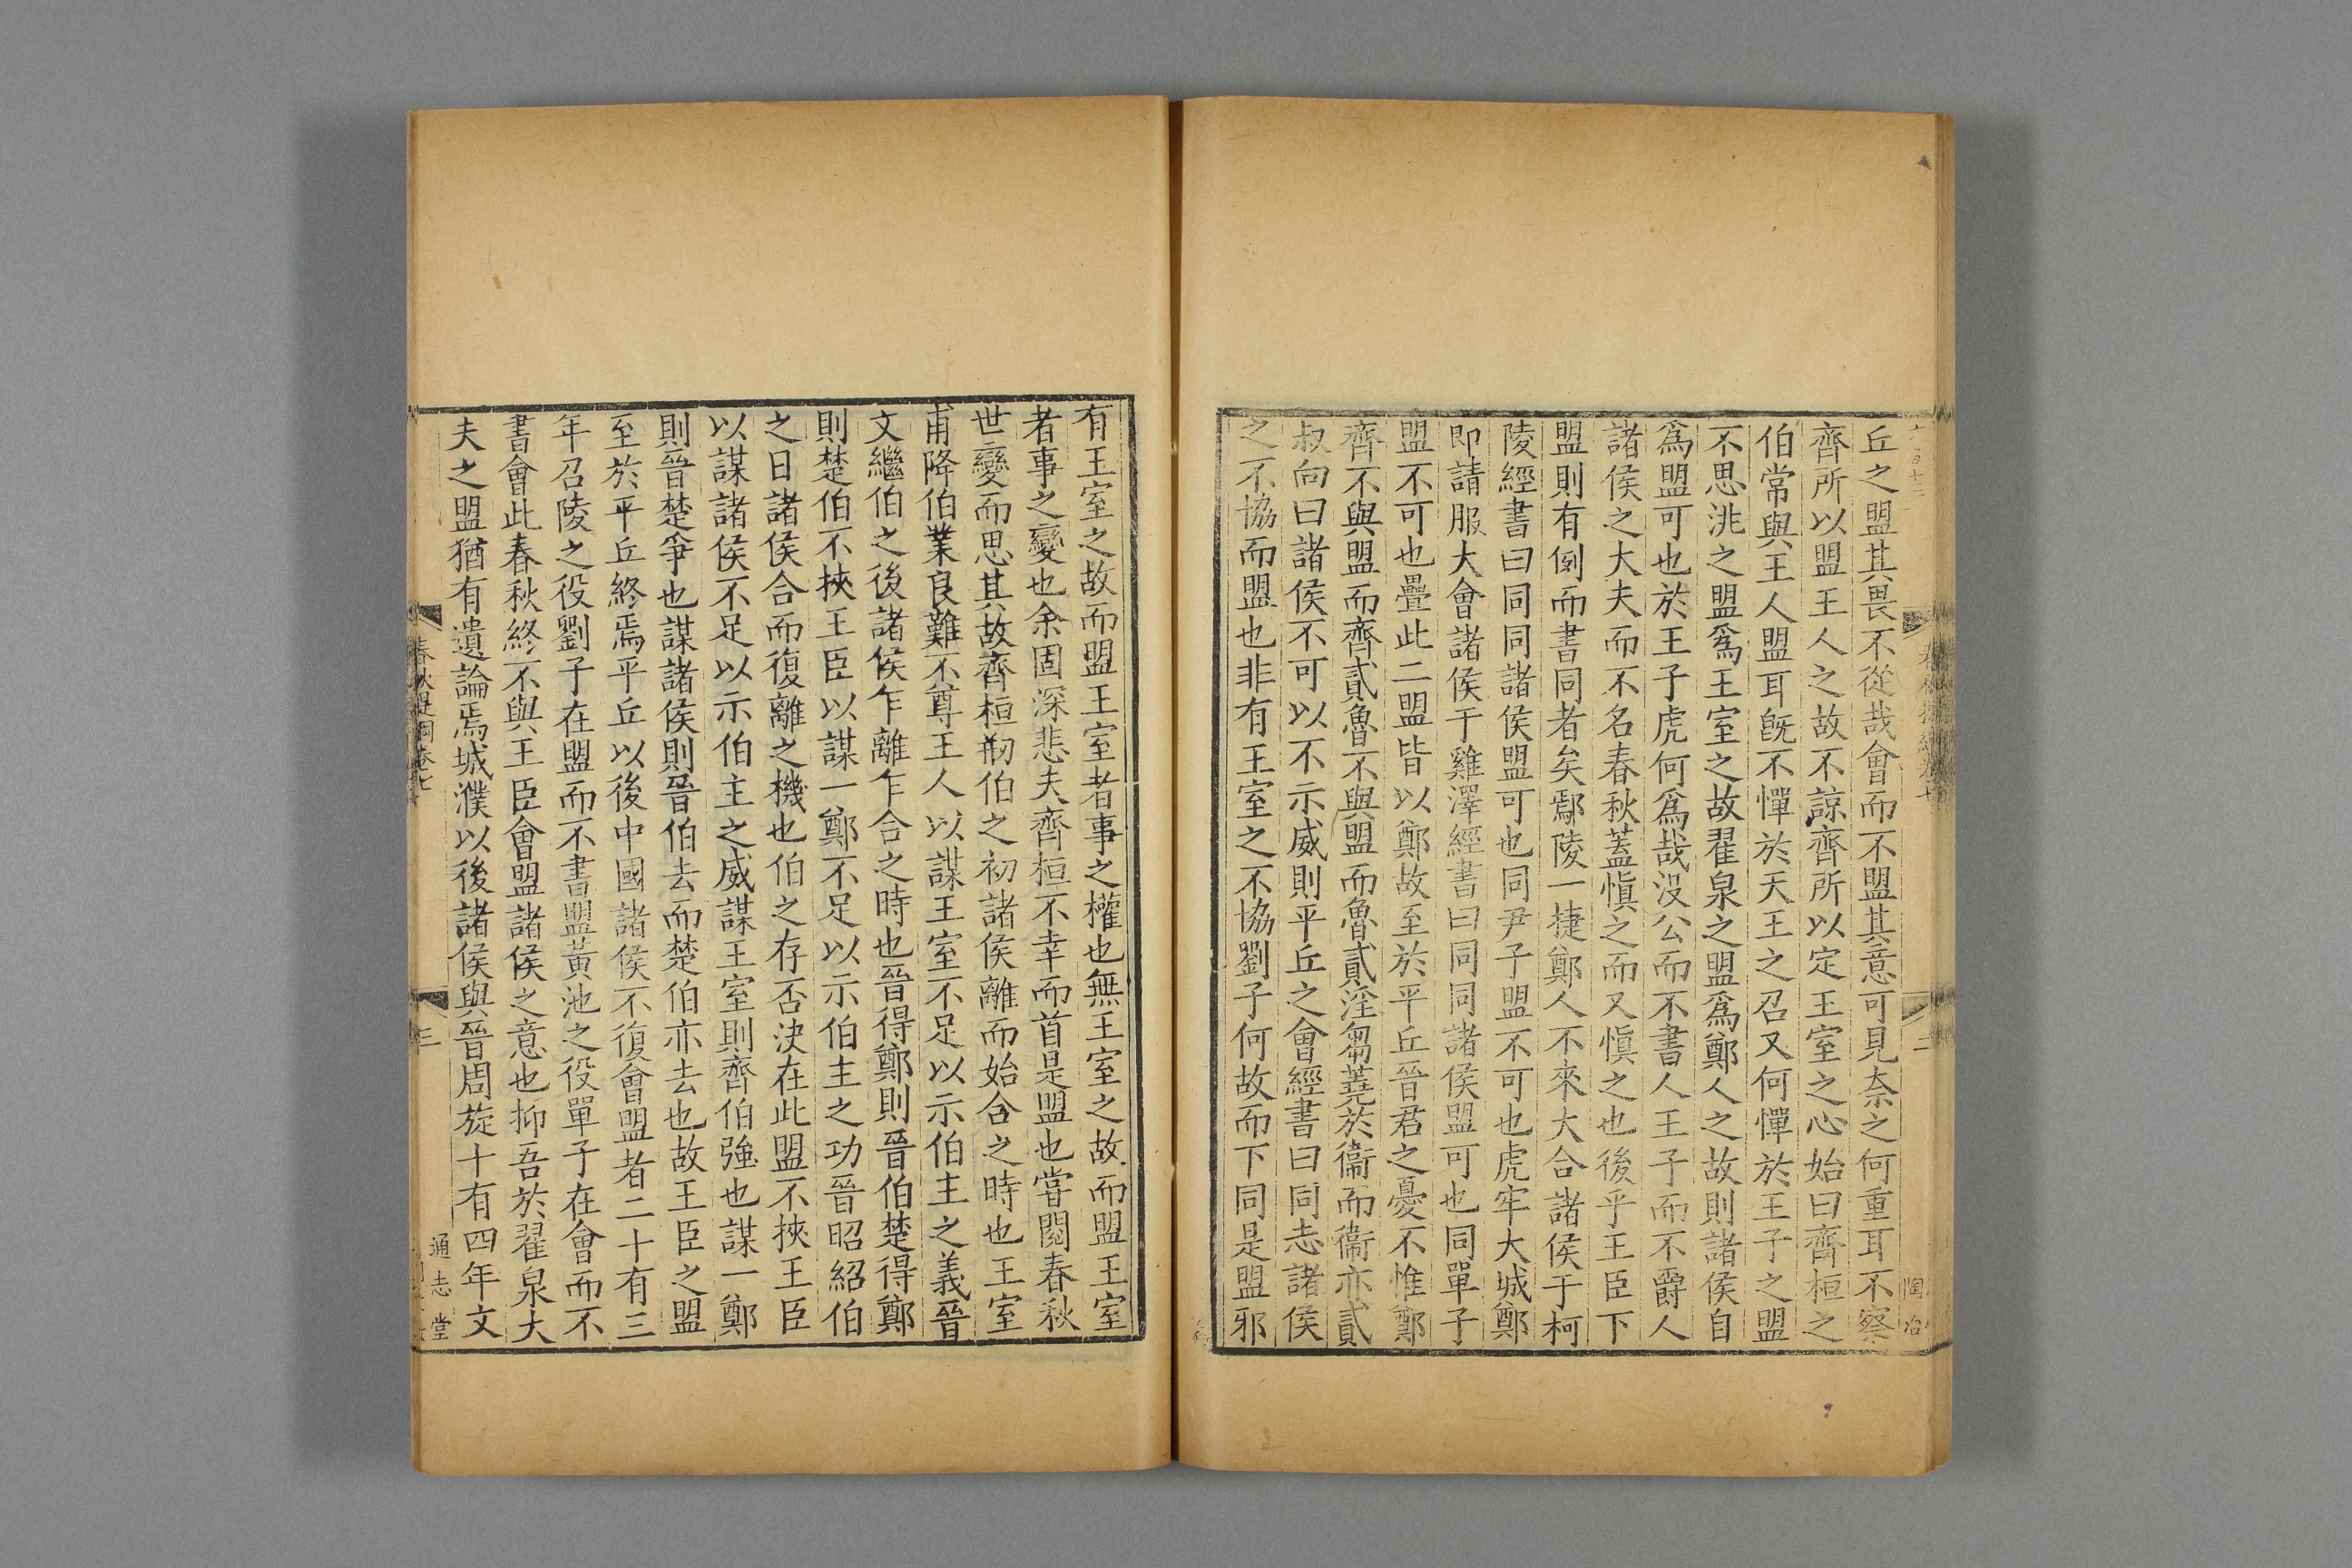 丘之盟其畏不從哉會而不盟其意可見奈之何重耳不察
齊所以盟王人之故不諒齊所以定王室之心始曰齊桓之
伯常與王人盟耳旣不憚於天王之召又何憚於王子之盟
不思洮之盟爲王室之故翟泉之盟爲鄭人之故則諸侯自
爲盟可也於王子虎何爲哉沒公而不書人王子而不爵人
諸侯之大夫而不名春秋蓋愼之而又愼之也後乎王臣下
盟則有例而書同者矣鄢陵一捷鄭人不來大合諸侯于柯
陵經書曰同同諸侯盟可也同尹子盟不可也虎牢大城鄭
即請服大會諸侯于雞澤經書曰同同諸侯盟可也同單子
盟不可也疊此二盟皆以鄭故至於平丘晉君之憂不惟鄭
齊不與盟而齊貳魯不與盟而魯貳淫芻蕘於衞而衞亦貳
叔向曰諸侯不可以不示威則平丘之會經書曰同志諸侯
之不協而盟也非有王室之不協劉子何故而下同是盟邪
二
陶冶
有王室之故而盟王室者事之權也無王室之故而盟王室
者事之變也余固深悲夫齊桓不幸而首是盟也嘗閱春秋
世變而思其故齊桓刱伯之初諸侯離而始合之時也王室
甫降伯業良難不尊王人以謀王室不足以示伯主之義晉
文繼伯之後諸侯乍離乍合之時也晉得鄭則晉伯楚得鄭
則楚伯不挾王臣以謀一鄭不足以示伯主之功晉昭紹伯
之日諸侯合而復離之機也伯之存否決在此盟不挾王臣
以謀諸侯不足以示伯主之威謀王室則齊伯強也謀一鄭
則晉楚爭也謀諸侯則晉伯去而楚伯亦去也故王臣之盟
至於平丘終焉平丘以後中國諸侯不復會盟者二十有三
年召陵之役劉子在盟而不書盟黃池之役單子在會而不
書會此春秋終不與王臣會盟諸侯之意也抑吾於翟泉大
夫之盟猶有遺論焉城濮以後諸侯與晉周旋十有四年文
春秋提綱卷七
三
通志堂